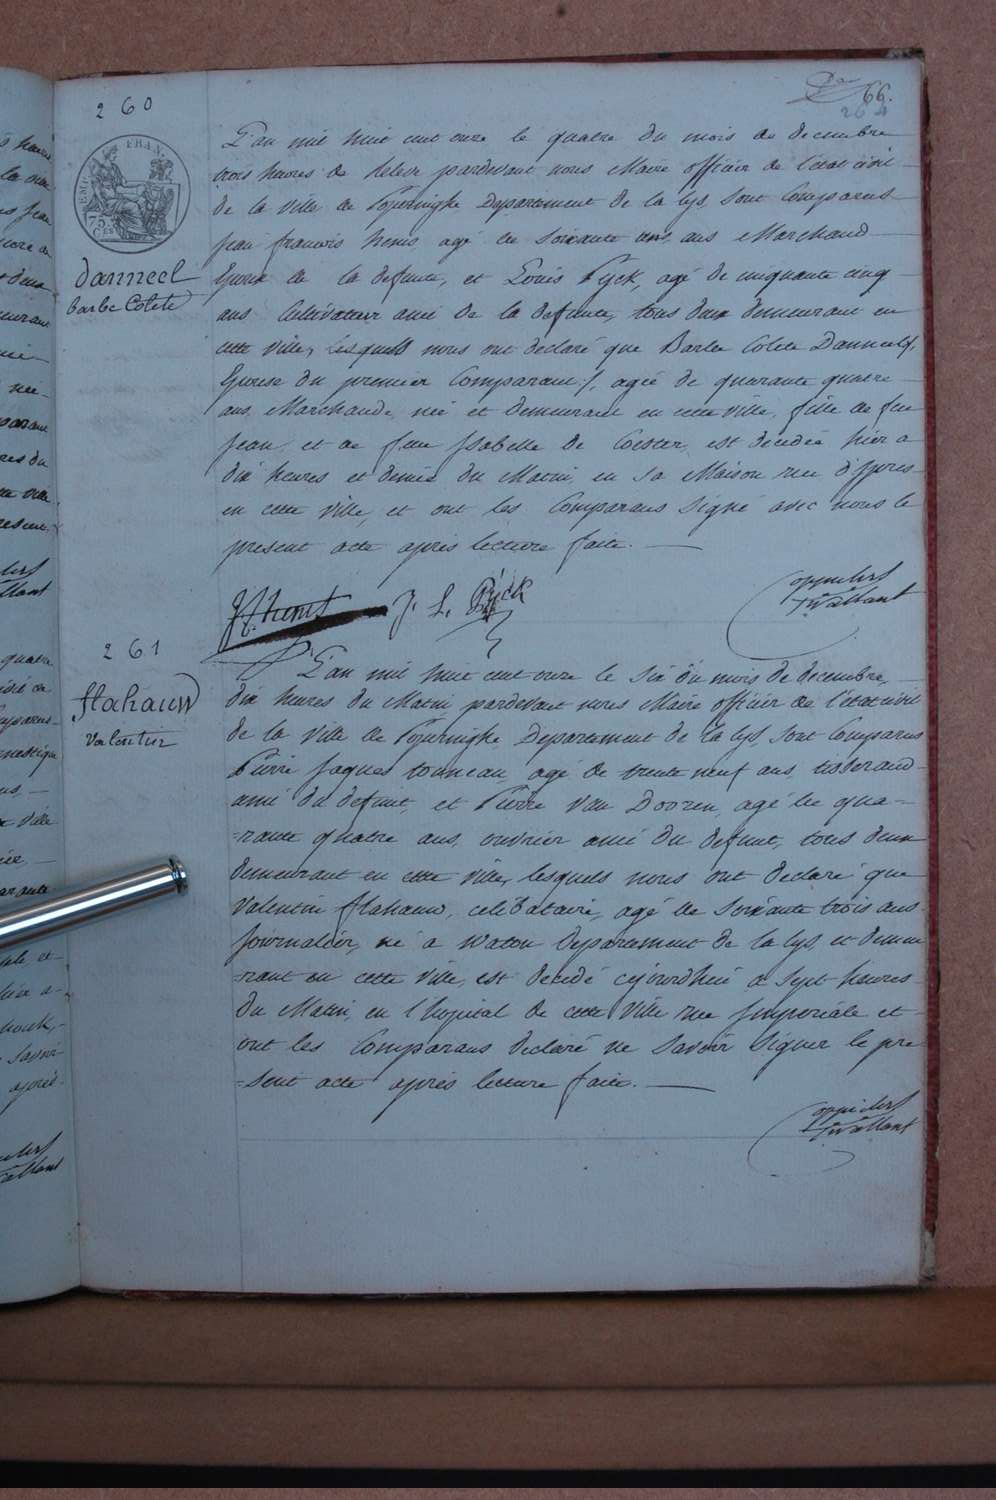 66.
264
260
EMP. FRAN.
75 CES
Danneel
barbe Colete
L'an mil huit cent onze le quatre du mois de decembre
trois heures de relevé pardevant nous Maire officier de l'état civil
de la ville de Poperinghe Departement de la lys, sont Comparus
Jean francois henis, agé de soixante ans Marchand
Epoux de la defunte, et Louis Pyck, agé de cinquante cinq
ans Cultivateur ami de la defunte, tous deux demeurant en
cette ville, lesquels nous ont declaré que Barbe Colete Danneel,
Epouse du premier Comparant, agée de quarante quatre
ans, Marchande, née et demeurant en cette ville, fille de feu
Jean et de feue Isabelle de Coester, est decedée hier a
dix heures et demie du Matin, en sa Maison rue d'Ypres
en cette ville, et ont les Comparans signé avec nous le
present acte après lecture faite.
J. L. Pÿck
261
flahauw
valentin
L'an mil huit cent onze le six du mois de decembre,
dix heures du Matin pardevant nous Maire officier de l'état civil
de la ville de Poperinghe, Departement de la lys, sont Comparus
Pierre Jaques tonneau, agé de trente neuf ans, tisserand
ami du defunt, et Pierre Van Dooren, agé de qua=
=rante quatre ans, ouvrier ami du defunt, tous deux
demeurant en cette ville, lesquels nous ont declaré que
Valentin flahauw, celibataire, agé de soixante trois ans
Journalier, né a Watou Departement de la lys, et demeu
=rant en cette ville, est decedé cejourdhui a sept heures
du Matin, en l'hopital de cette ville rue Imperiale et
ont les Comparans declaré ne savoir signer le pre
=sent acte après lecture faite.